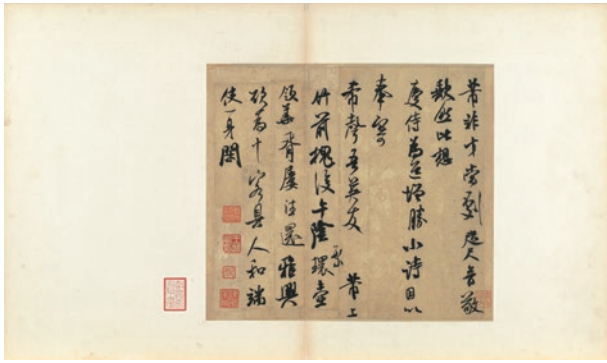 芾非才當劇咫尺音敬
缺然比想
慶侍為道增勝小詩因以
奉寄
希聲吾英友 芾上
竹前槐後午陰環壺
領華胥屢往還雅興
欲為十客具人和端
使一身閑